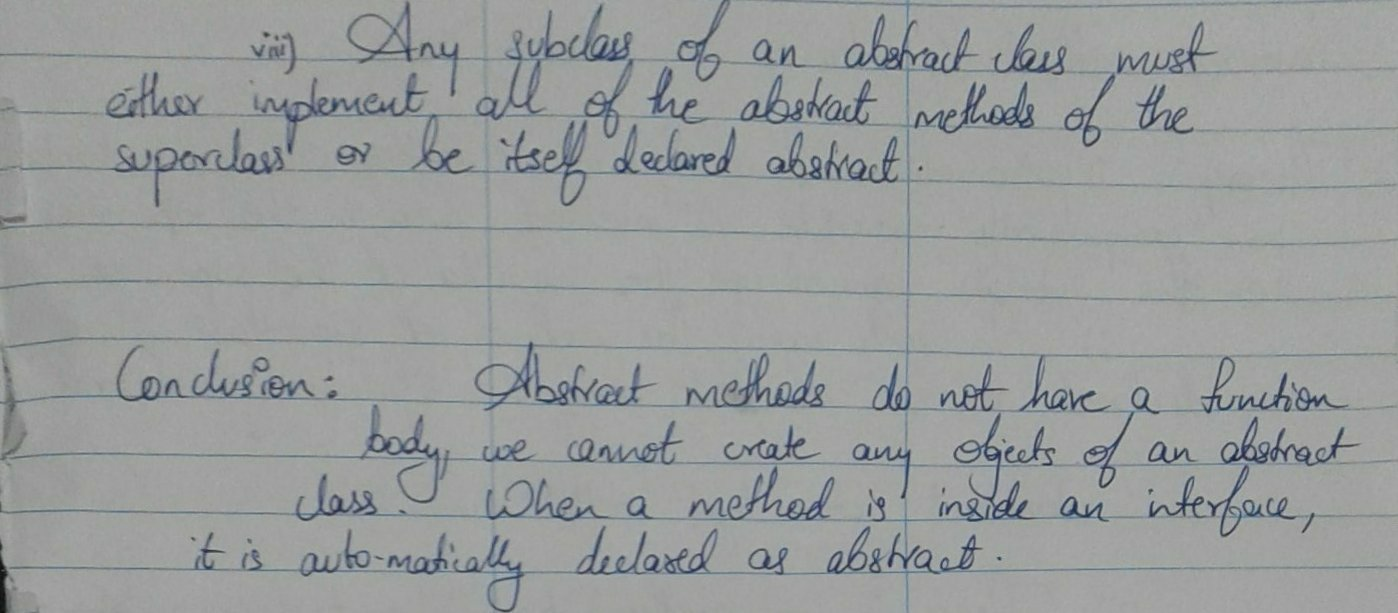 viii) Any subclass of an abstract class must
either implement all of the abstract methods of the
superclass or be itself declared abstract.
Conclusion: Abstract methods do not have a function
body, we cannot create any objects of an abstract
class. When a method is inside an interface,
it is auto-matically declared as abstract.